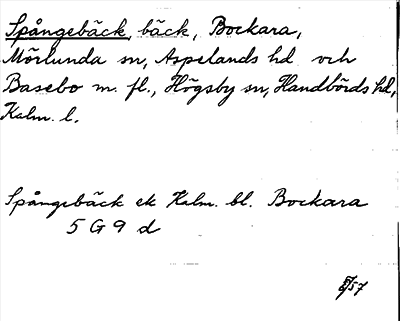 Spångebäck, bäck, Bockara,
Mörlunda sn, Aspelands hd och
Basebo m. fl., Högsby sn, Handbörds hd,
Kalm. l.
Spångebäck ek Kalm. bl. Bockara
5 G 9 d